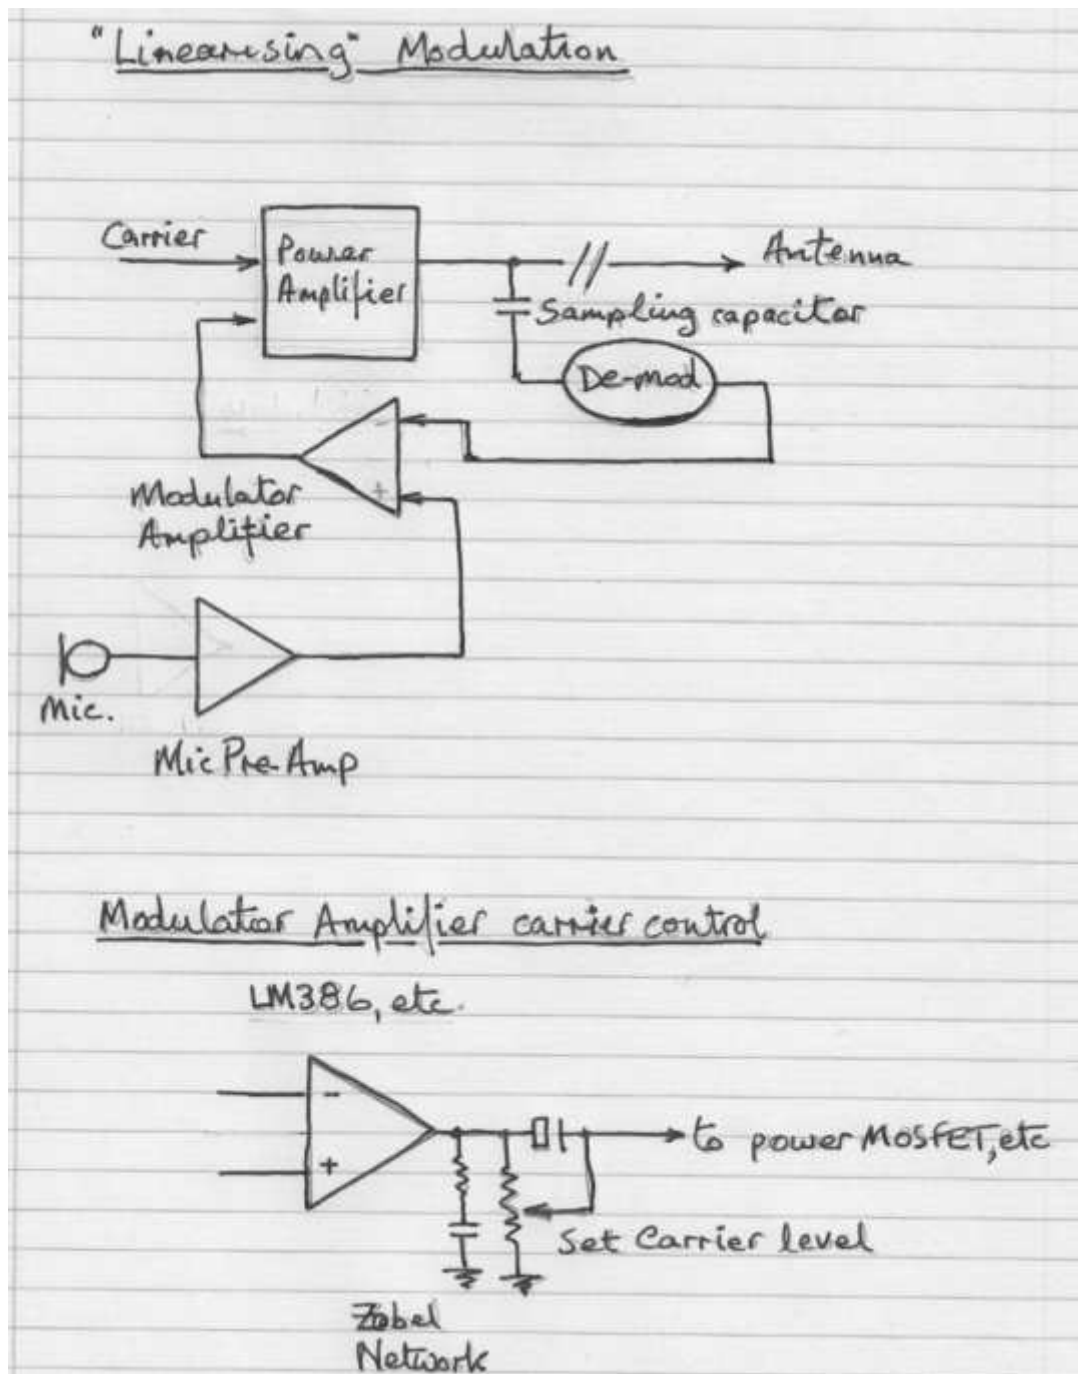 "Linearising" Modulation
Carrier
Power
Amplifier
Antenna
Sampling capacitor
De-mod
-
+
Modulator
Amplifier
Mic.
Mic Pre-Amp
Modulator Amplifier carrier control
LM386, etc.
-
+
to power MOSFET, etc
Set Carrier level
Zobel
Network